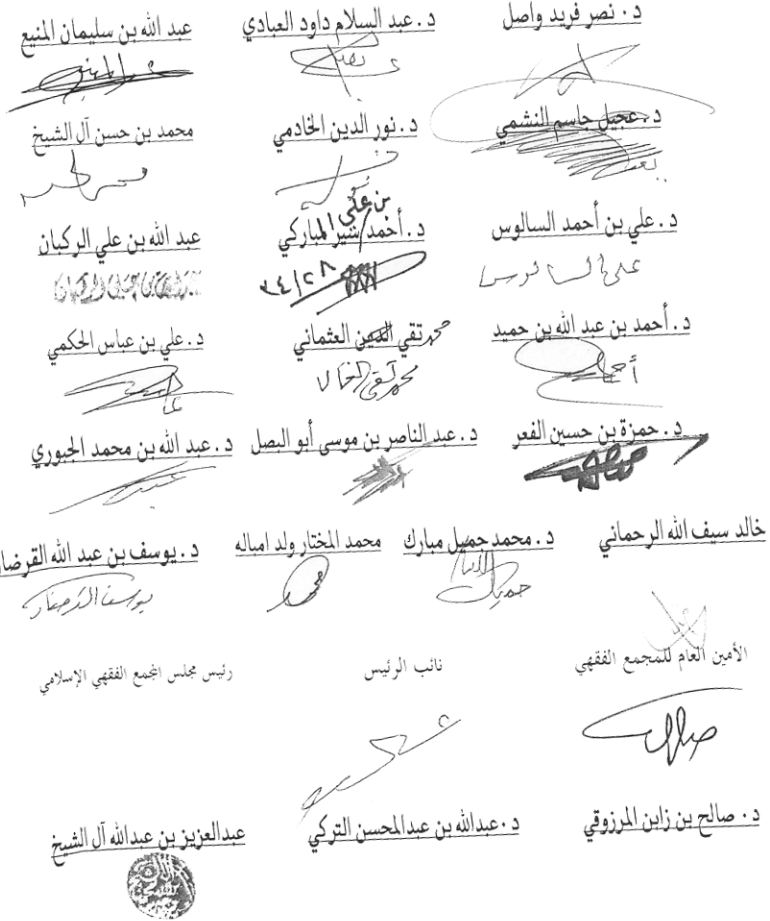 د. نصر فريد واصل د. عبد السلام داود العبادي عبد الله بن سليمان المنيع
د. عجيل جاسم النشمي د. نور الدين الخادمي محمد بن حسن آل الشيخ
بن علي
د. علي بن أحمد السالوس د. أحمد/سير المباركي عبد الله بن علي الركبان
علي السالوس ٣٤/٢٨
د. أحمد بن عبد الله بن حميد محمد تقي الدين العثماني د. علي بن عباس الحكمي
محمد تقي
د. حمزة بن حسين الفعر د. عبد الناصر بن موسى أبو البصل د. عبد الله بن محمد الجبوري
خالد سيف الله الرحماني د. محمد جميل مبارك محمد المختار ولد امباله د. يوسف بن عبد الله القرضا
يوسف القرضاوي
الأمين العام للمجمع الفقهي نائب الرئيس رئيس مجلس المجمع الفقهي الإسلامي
د. صالح بن زابن المرزوقي د. عبدالله بن عبدالمحسن التركي عبدالعزيز بن عبدالله آل الشيخ